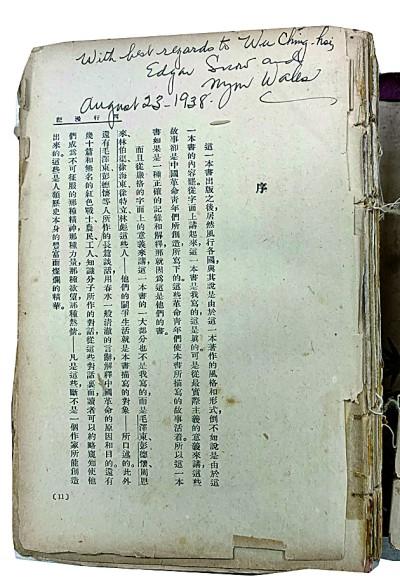 With best regards to Wu Ching-hsi
Edgar Snow and
Nym Wales
August 23-1938.
西行漫記
序
這一本書出版之後,居然風行各國,與其說是由於這一本著作的風格和形式,倒不如說是由於這
一本書的內容罷。從字面上講起來,這一本書是我寫的,這是真的。可是從最實際主義的意義來講,這些
故事卻是中國革命青年們所創造,所寫下的。這些革命青年們使本書所描寫的故事活着。所以這一本
書如果是一種正確的記錄和解釋,那就因為這是他們的書。
而且從嚴格的字面上的意義來講,這一本書的一大部分也不是我寫的,而是毛澤東,彭德懷,周恩
來,林伯渠,徐海東,徐特立,林彪這些人——他們的鬥爭生活就是本書描寫的對象——所口述的。此外
還有毛澤東彭德懷等人所作的長篇談話,用春水一般清澈的言辭,解釋中國革命的原因和目的。還有
幾十篇和無名的紅色戰士農民工人知識分子所作的對話,從這些對話裏面,讀者可以約略窺知使他
們成為不可征服的那種精神,那種力量,那種慾望,那種熱情。——凡是這些,斷不是一個作家所能創造
出來的。這些是人類歷史本身的豐富而燦爛的精華。
(11)